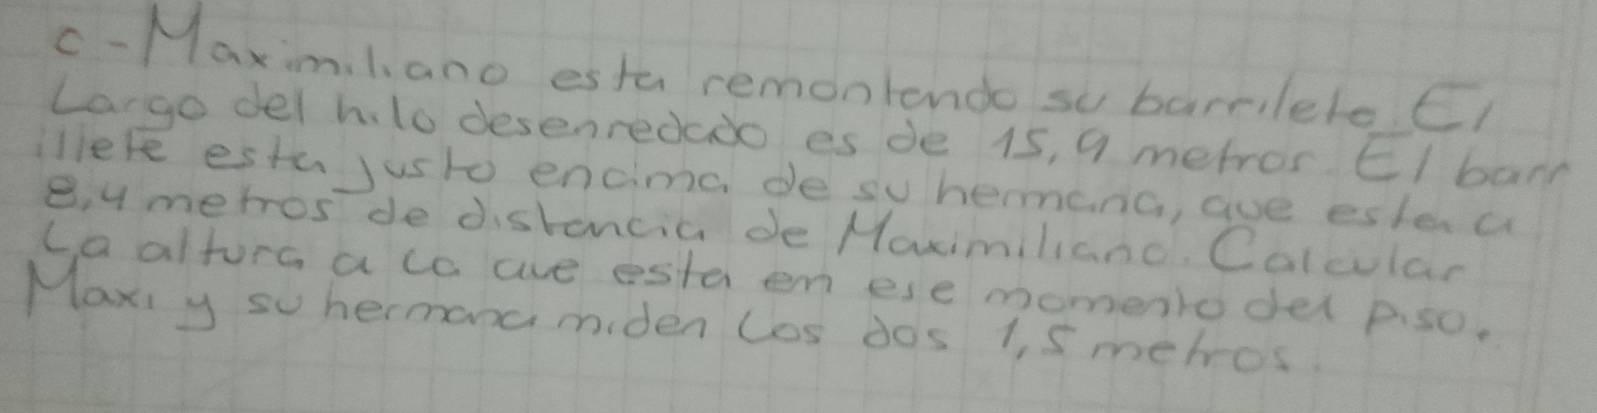 c-Maximiliano esta remontando su barrilete. El
Largo del hilo desenredado es de 15,9 metros. El barr
illete esta justo encima de su hermana, que esta a
8,4 metros de distancia de Maximiliano. Calcular
La altura a la que esta en ese momento del piso.
Maxi y su hermana miden los dos 1,5 metros.